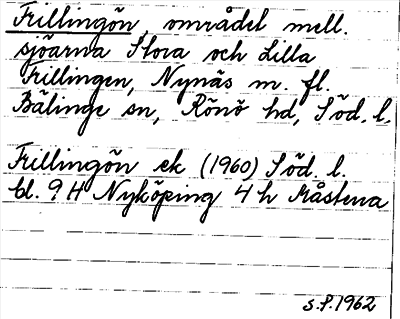 Trillingön, området mell.
sjöarna Stora och Lilla
Trillingen, Nynäs m. fl.
Bälinge sn, Rönö hd, Söd. l.
Trillingön ek (1960) Söd. l.
bl. 9 H Nyköping 4 h Råstena
S.P. 1962